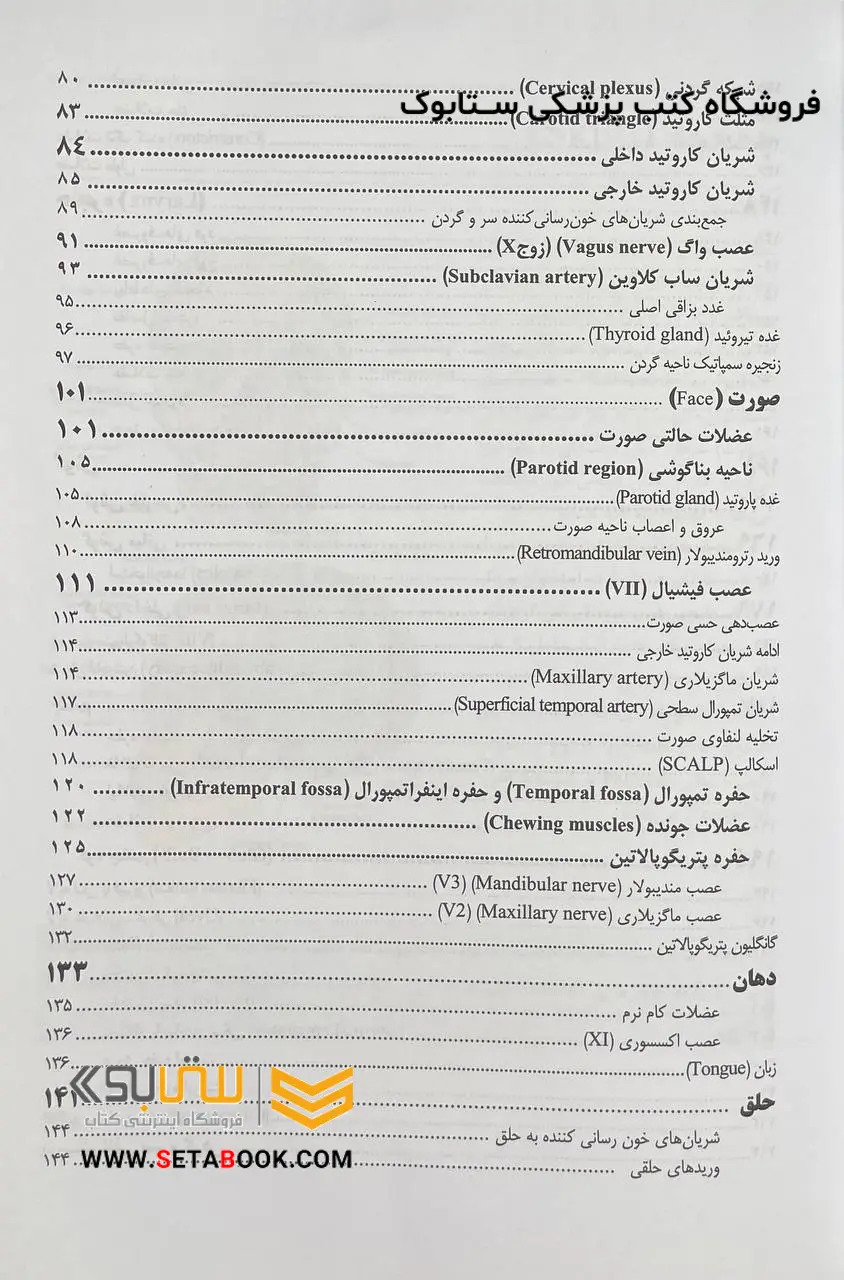 شبکه گردنی (Cervical plexus) ........ ۸۰
فروشگاه کتب پزشکی ستابوک
مثلث کاروتید (Carotid triangle) ........ ۸۳
شریان کاروتید داخلی ........ ۸۴
شریان کاروتید خارجی ........ ۸۵
جمع‌بندی شریان‌های خون‌رسانی‌کننده سر و گردن ........ ۸۹
عصب واگ (Vagus nerve) (زوجX) ........ ۹۱
شریان ساب کلاوین (Subclavian artery) ........ ۹۳
غدد بزاقی اصلی ........ ۹۵
غده تیروئید (Thyroid gland) ........ ۹۶
زنجیره سمپاتیک ناحیه گردن ........ ۹۷
صورت (Face) ........ ۱۰۱
عضلات حالتی صورت ........ ۱۰۱
ناحیه بناگوشی (Parotid region) ........ ۱۰۵
غده پاروتید (Parotid gland) ........ ۱۰۵
عروق و اعصاب ناحیه صورت ........ ۱۰۸
ورید رترومندیبولار (Retromandibular vein) ........ ۱۱۰
عصب فیشیال (VII) ........ ۱۱۱
عصب‌دهی حسی صورت ........ ۱۱۳
ادامه شریان کاروتید خارجی ........ ۱۱۴
شریان ماگزیلاری (Maxillary artery) ........ ۱۱۴
شریان تمپورال سطحی (Superficial temporal artery) ........ ۱۱۷
تخلیه لنفاوی صورت ........ ۱۱۸
اسکالپ (SCALP) ........ ۱۱۸
حفره تمپورال (Temporal fossa) و حفره اینفراتمپورال (Infratemporal fossa) ........ ۱۲۰
عضلات جونده (Chewing muscles) ........ ۱۲۲
حفره پتریگوپالاتین ........ ۱۲۵
عصب مندیبولار (Mandibular nerve) (V3) ........ ۱۲۷
عصب ماگزیلاری (Maxillary nerve) (V2) ........ ۱۳۰
گانگلیون پتریگوپالاتین ........ ۱۳۲
دهان ........ ۱۳۳
عضلات کام نرم ........ ۱۳۵
عصب اکسسوری (XI) ........ ۱۳۶
زبان (Tongue) ........ ۱۳۶
ستابوک
حلق ........ ۱۴۱
فروشگاه اینترنتی کتاب
شریان‌های خون رسانی کننده به حلق ........ ۱۴۴
WWW.SETABOOK.COM
وریدهای حلقی ........ ۱۴۴